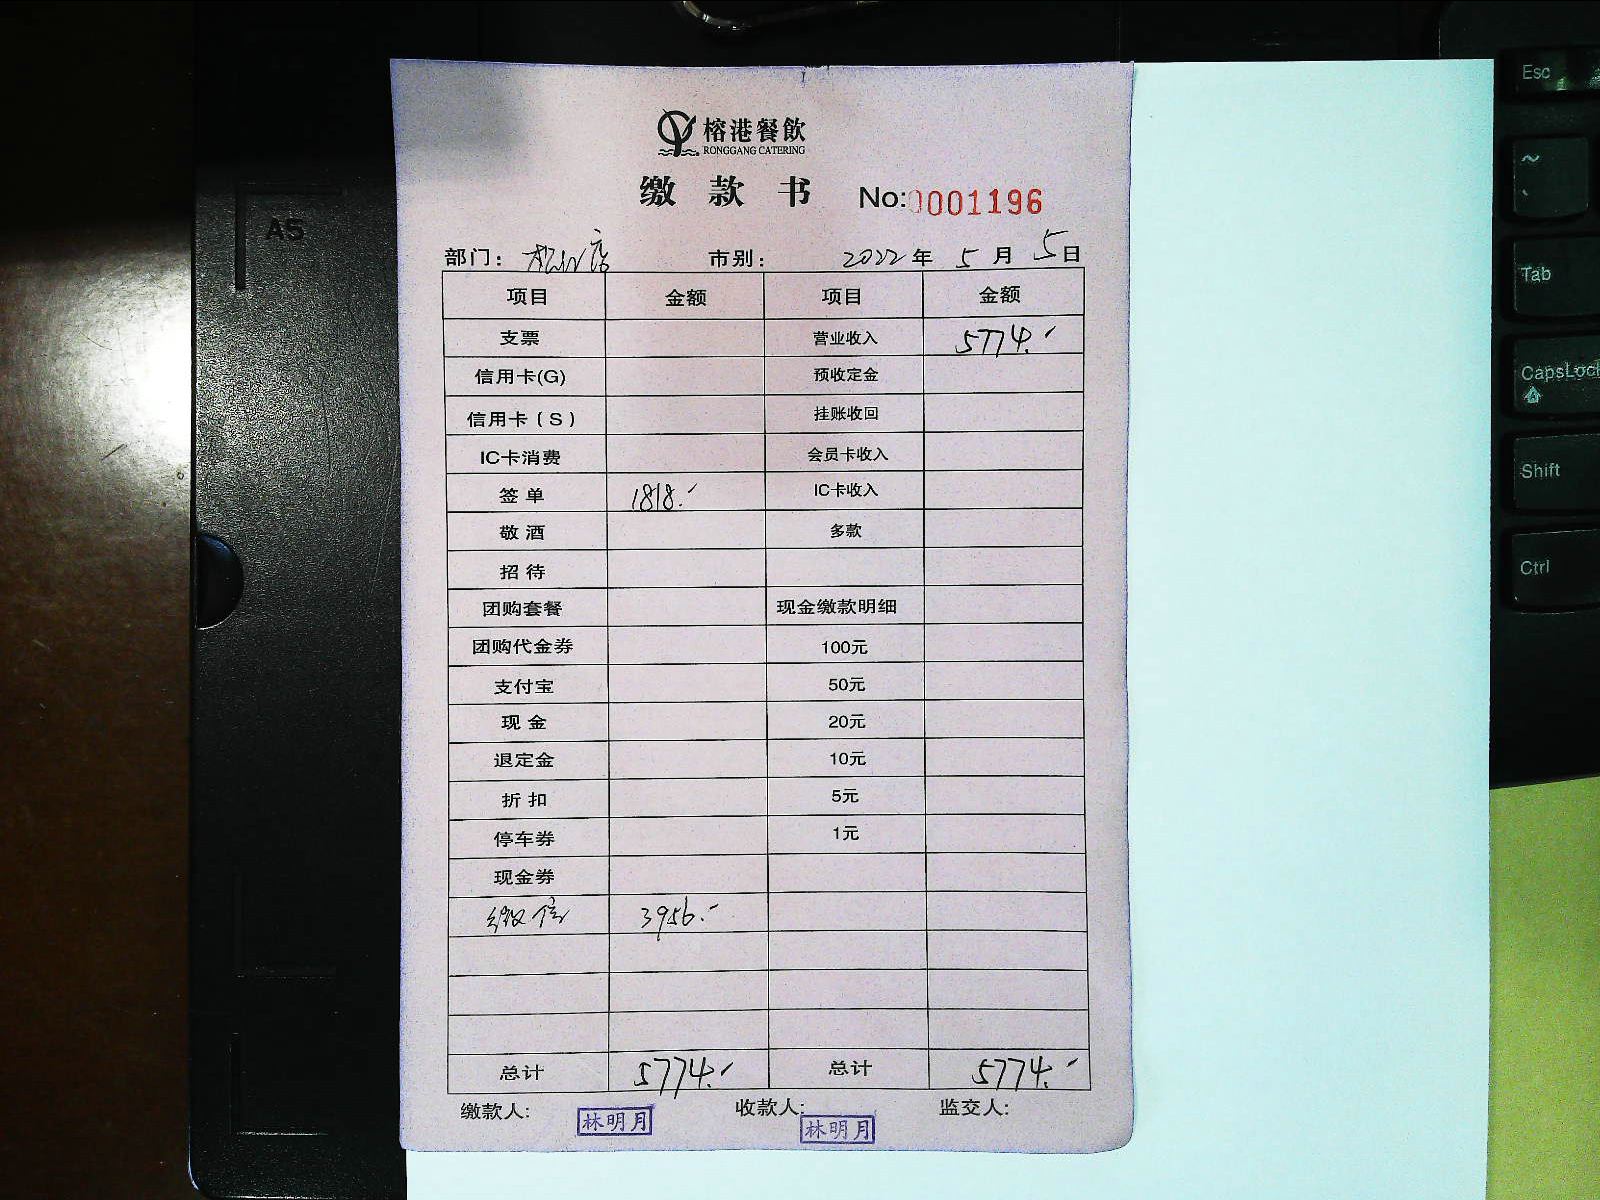 榕港餐飲
RONGGANG CATERING
缴款书 No:0001196
部门: 店 市别: 2022年5月5日
项目 金额 项目 金额
支票 营业收入 5774.-
信用卡(G) 预收定金
信用卡(S) 挂账收回
IC卡消费 会员卡收入
签单 1818.- IC卡收入
敬酒 多款
招待
团购套餐 现金缴款明细
团购代金券 100元
支付宝 50元
现金 20元
退定金 10元
折扣 5元
停车券 1元
现金券
微信 3956.-
总计 5774.- 总计 5774.-
缴款人: 林明月 收款人: 林明月 监交人:
A5
Esc
~
`
Tab
CapsLock
Shift
Ctrl